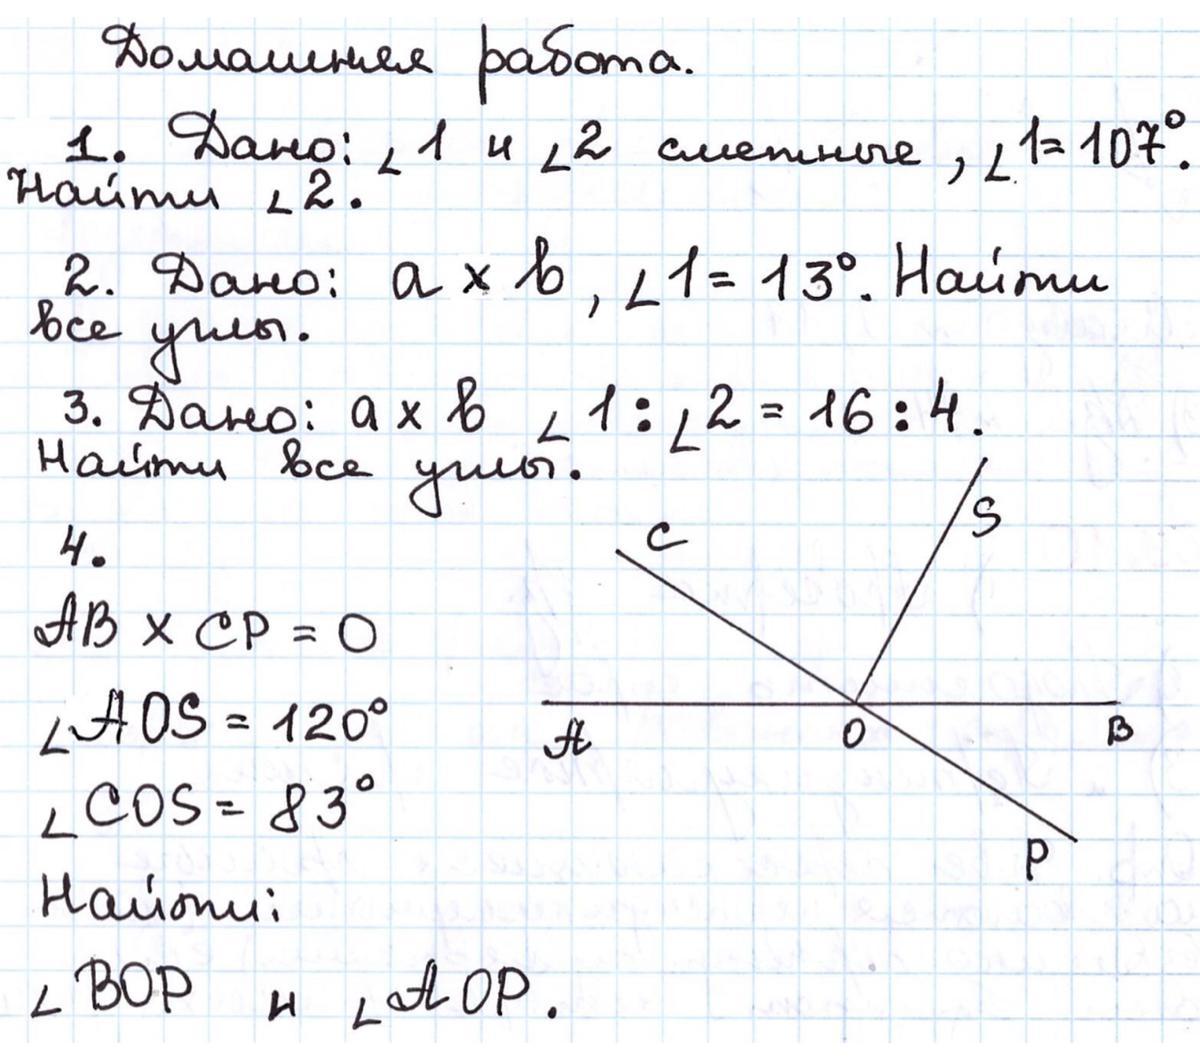 Домашняя работа.
1. Дано: ∠1 и ∠2 смежные, ∠1=107°.
Найти ∠2.
2. Дано: a x b, ∠1 = 13°. Найти
все углы.
3. Дано: a x b ∠1 : ∠2 = 16 : 4.
Найти все углы.
4.
AB x CP = O
∠AOS = 120°
∠COS = 83°
Найти:
∠BOP и ∠AOP.
C
S
A
O
B
P